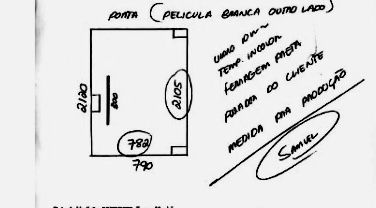 PORTA (PELICULA BRANCA OUTRO LADO)
VIDRO
TEMP. INCOLOR
FERRAGEM PRETA
PUXADOR DO CLIENTE
MEDIDA PRA PRODUÇÃO
SAMUEL
2120
800
2105
782
790